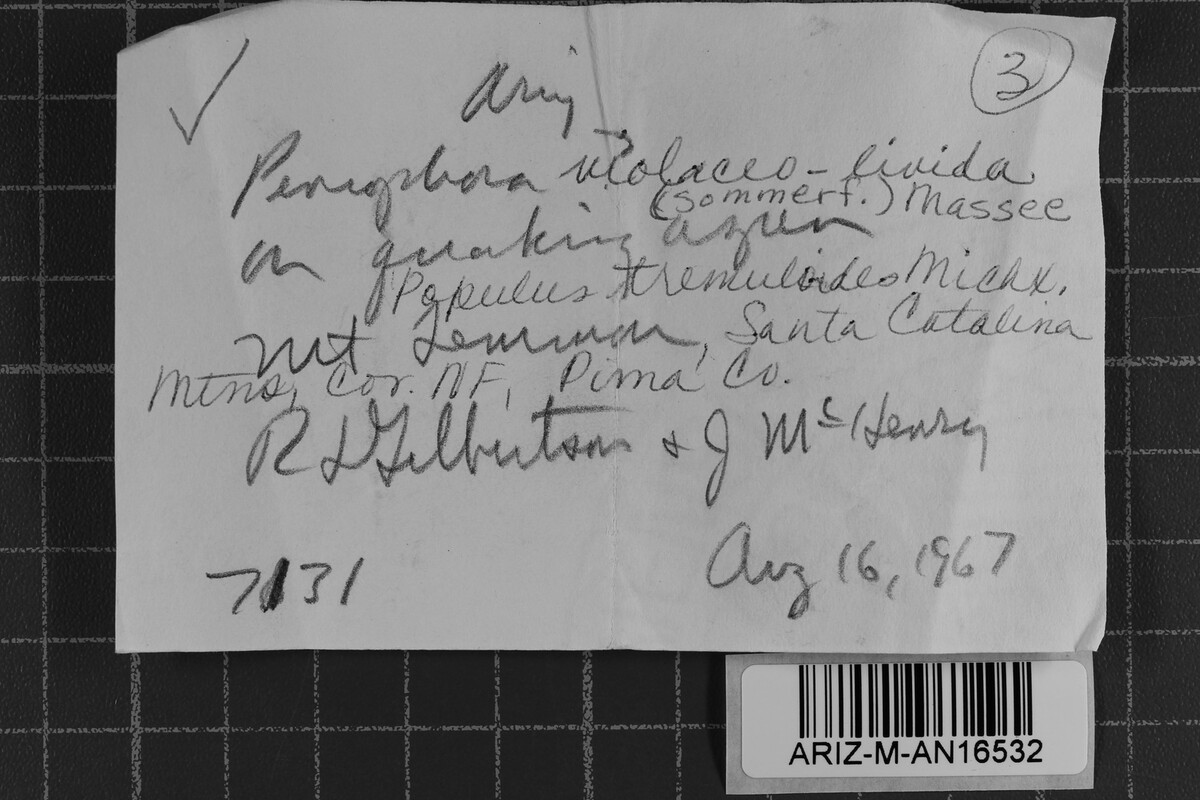 ✓
3
Ariz
Peniophora violaceo-livida
(Sommerf.) Massee
on quaking aspen
Populus tremuloides Michx.
Mt Lemmon, Santa Catalina
Mtns, Cor. NF, Pima Co.
R L Gilbertson & J McHenry
7131
Aug 16, 1967
ARIZ-M-AN16532